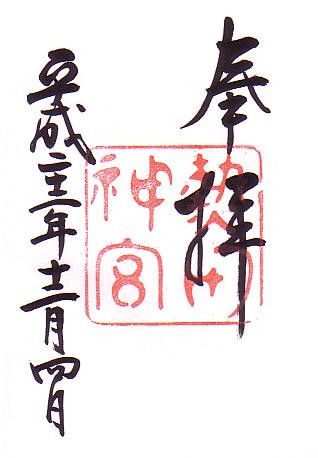 奉拝
熱田
神宮
平成二十二年十二月四日